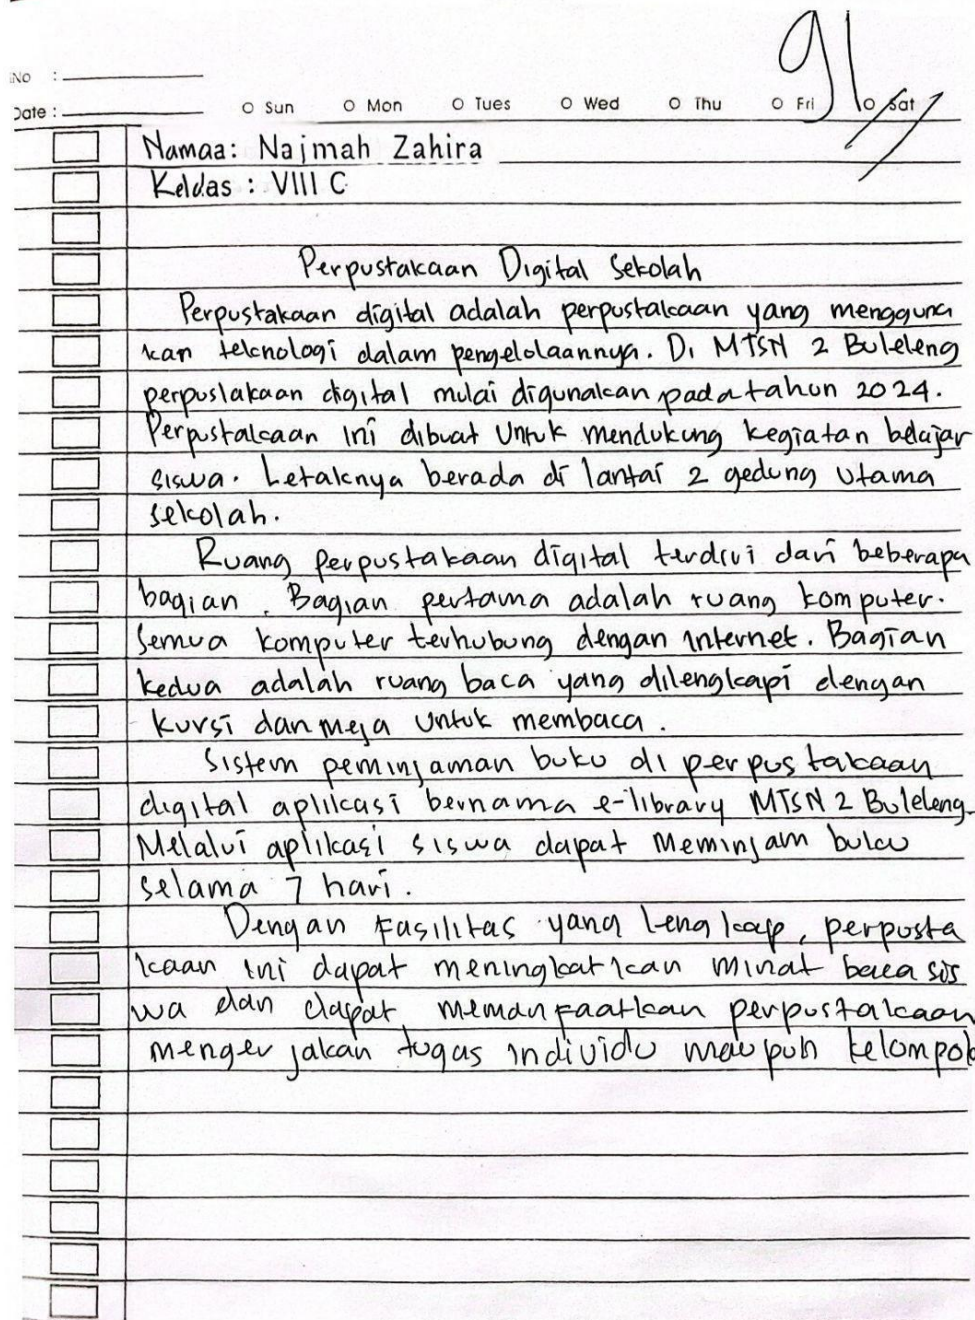 91
No :
Date :
O Sun O Mon O Tues O Wed O Thu O Fri O Sat
Namaa: Najmah Zahira
Keldas : VIII C
Perpustakaan Digital Sekolah
Perpustakaan digital adalah perpustakaan yang mengguna
kan teknologi dalam pengelolaannya. Di MTSN 2 Buleleng
perpuslakaan digital mulai digunakan pada tahun 2024.
Perpustakaan ini dibuat Untuk mendukung kegiatan belajar
siswa. Letaknya berada di lantai 2 gedung Utama
sekolah.
Ruang perpustakaan digital terdiri dari beberapa
bagian. Bagian pertama adalah ruang komputer.
Semua komputer terhubung dengan internet. Bagian
kedua adalah ruang baca yang dilengkapi dengan
kursi dan meja Untuk membaca.
Sistem peminjaman buku di perpustakaan
digital aplikasi bernama e-library MTSN 2 Buleleng.
Melalui aplikasi siswa dapat meminjam buku
selama 7 hari.
Dengan Fasilitas yang lengkap, perpusta
kaan ini dapat meningkatkan minat baca sis
wa dan dapat memanfaatkan perpustakaan
mengerjakan tugas individu maupun kelompok